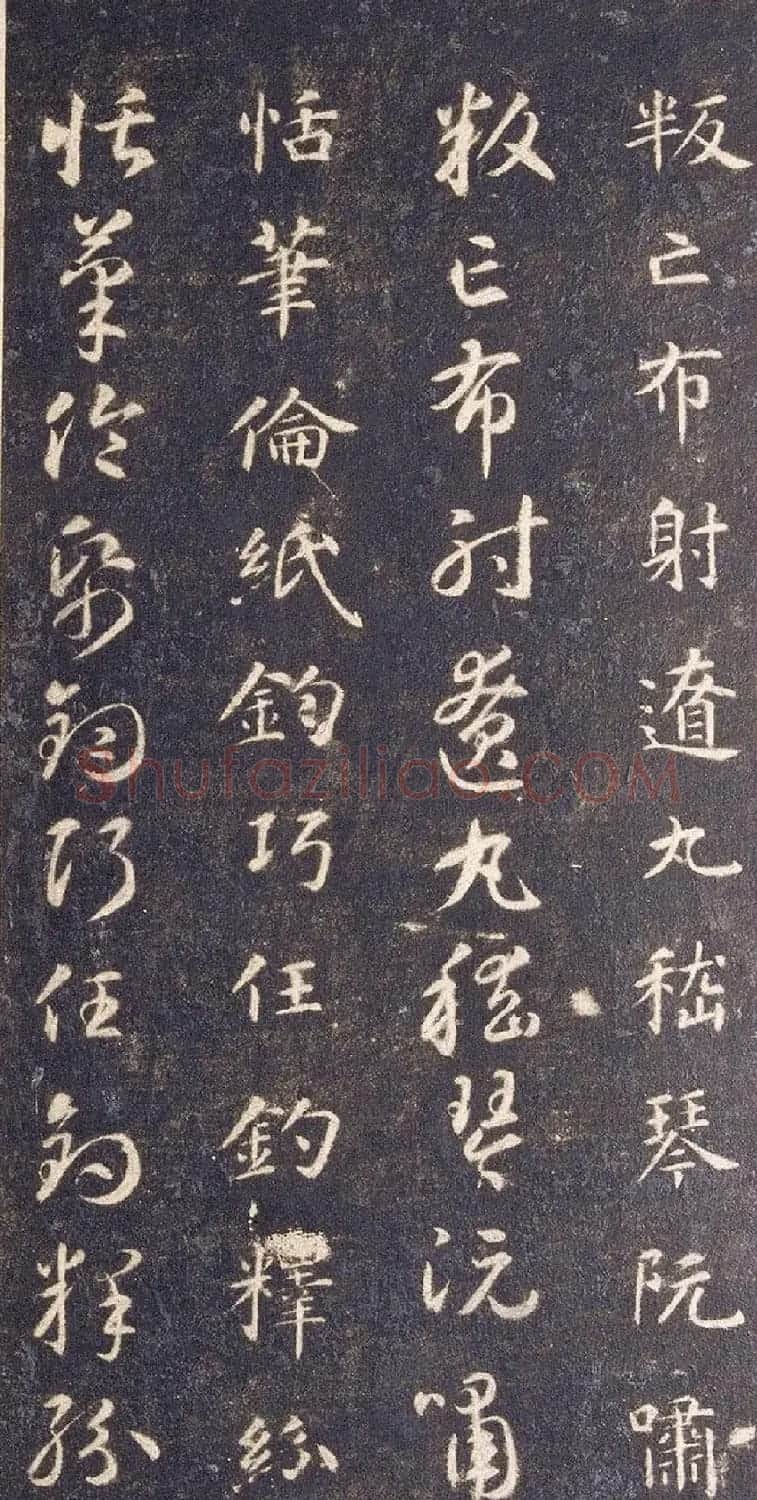 叛亡布射遼丸嵇琴阮嘯
叛亡布射遼丸嵇琴阮嘯
恬筆倫紙鈞巧任釣釋紛
恬筆倫紙鈞巧任釣釋紛
Shufaziliao.COM